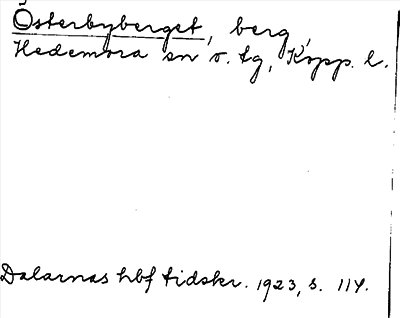 Österbyberget, berg,
Hedemora sn o. tg, Kopp. l.
Dalarnas hbf tidskr. 1923, s. 114.